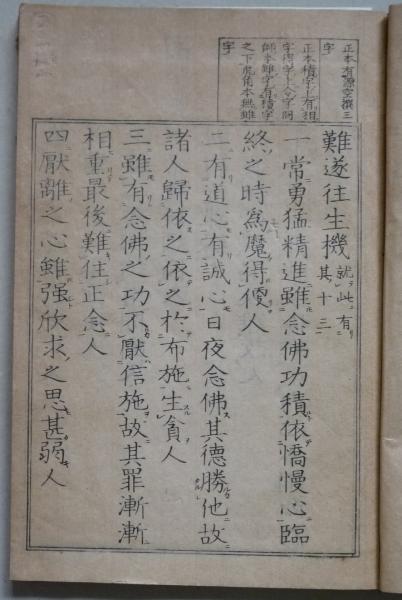 正本有源空撰三
字
正本積字上有相
字得字上今字同
師本雖字有積字
之下虎角本無雖
字
難遂往生機就此有其十三
一常勇猛精進雖念佛功積依憍慢心臨
終之時為魔得傻人
二有道心有誠心日夜念佛其德勝他故
諸人歸依之依之於布施生貪人
三雖有念佛之功不厭信施故其罪漸漸
相重最後難住正念人
四厭離之心雖强欣求之思甚弱人